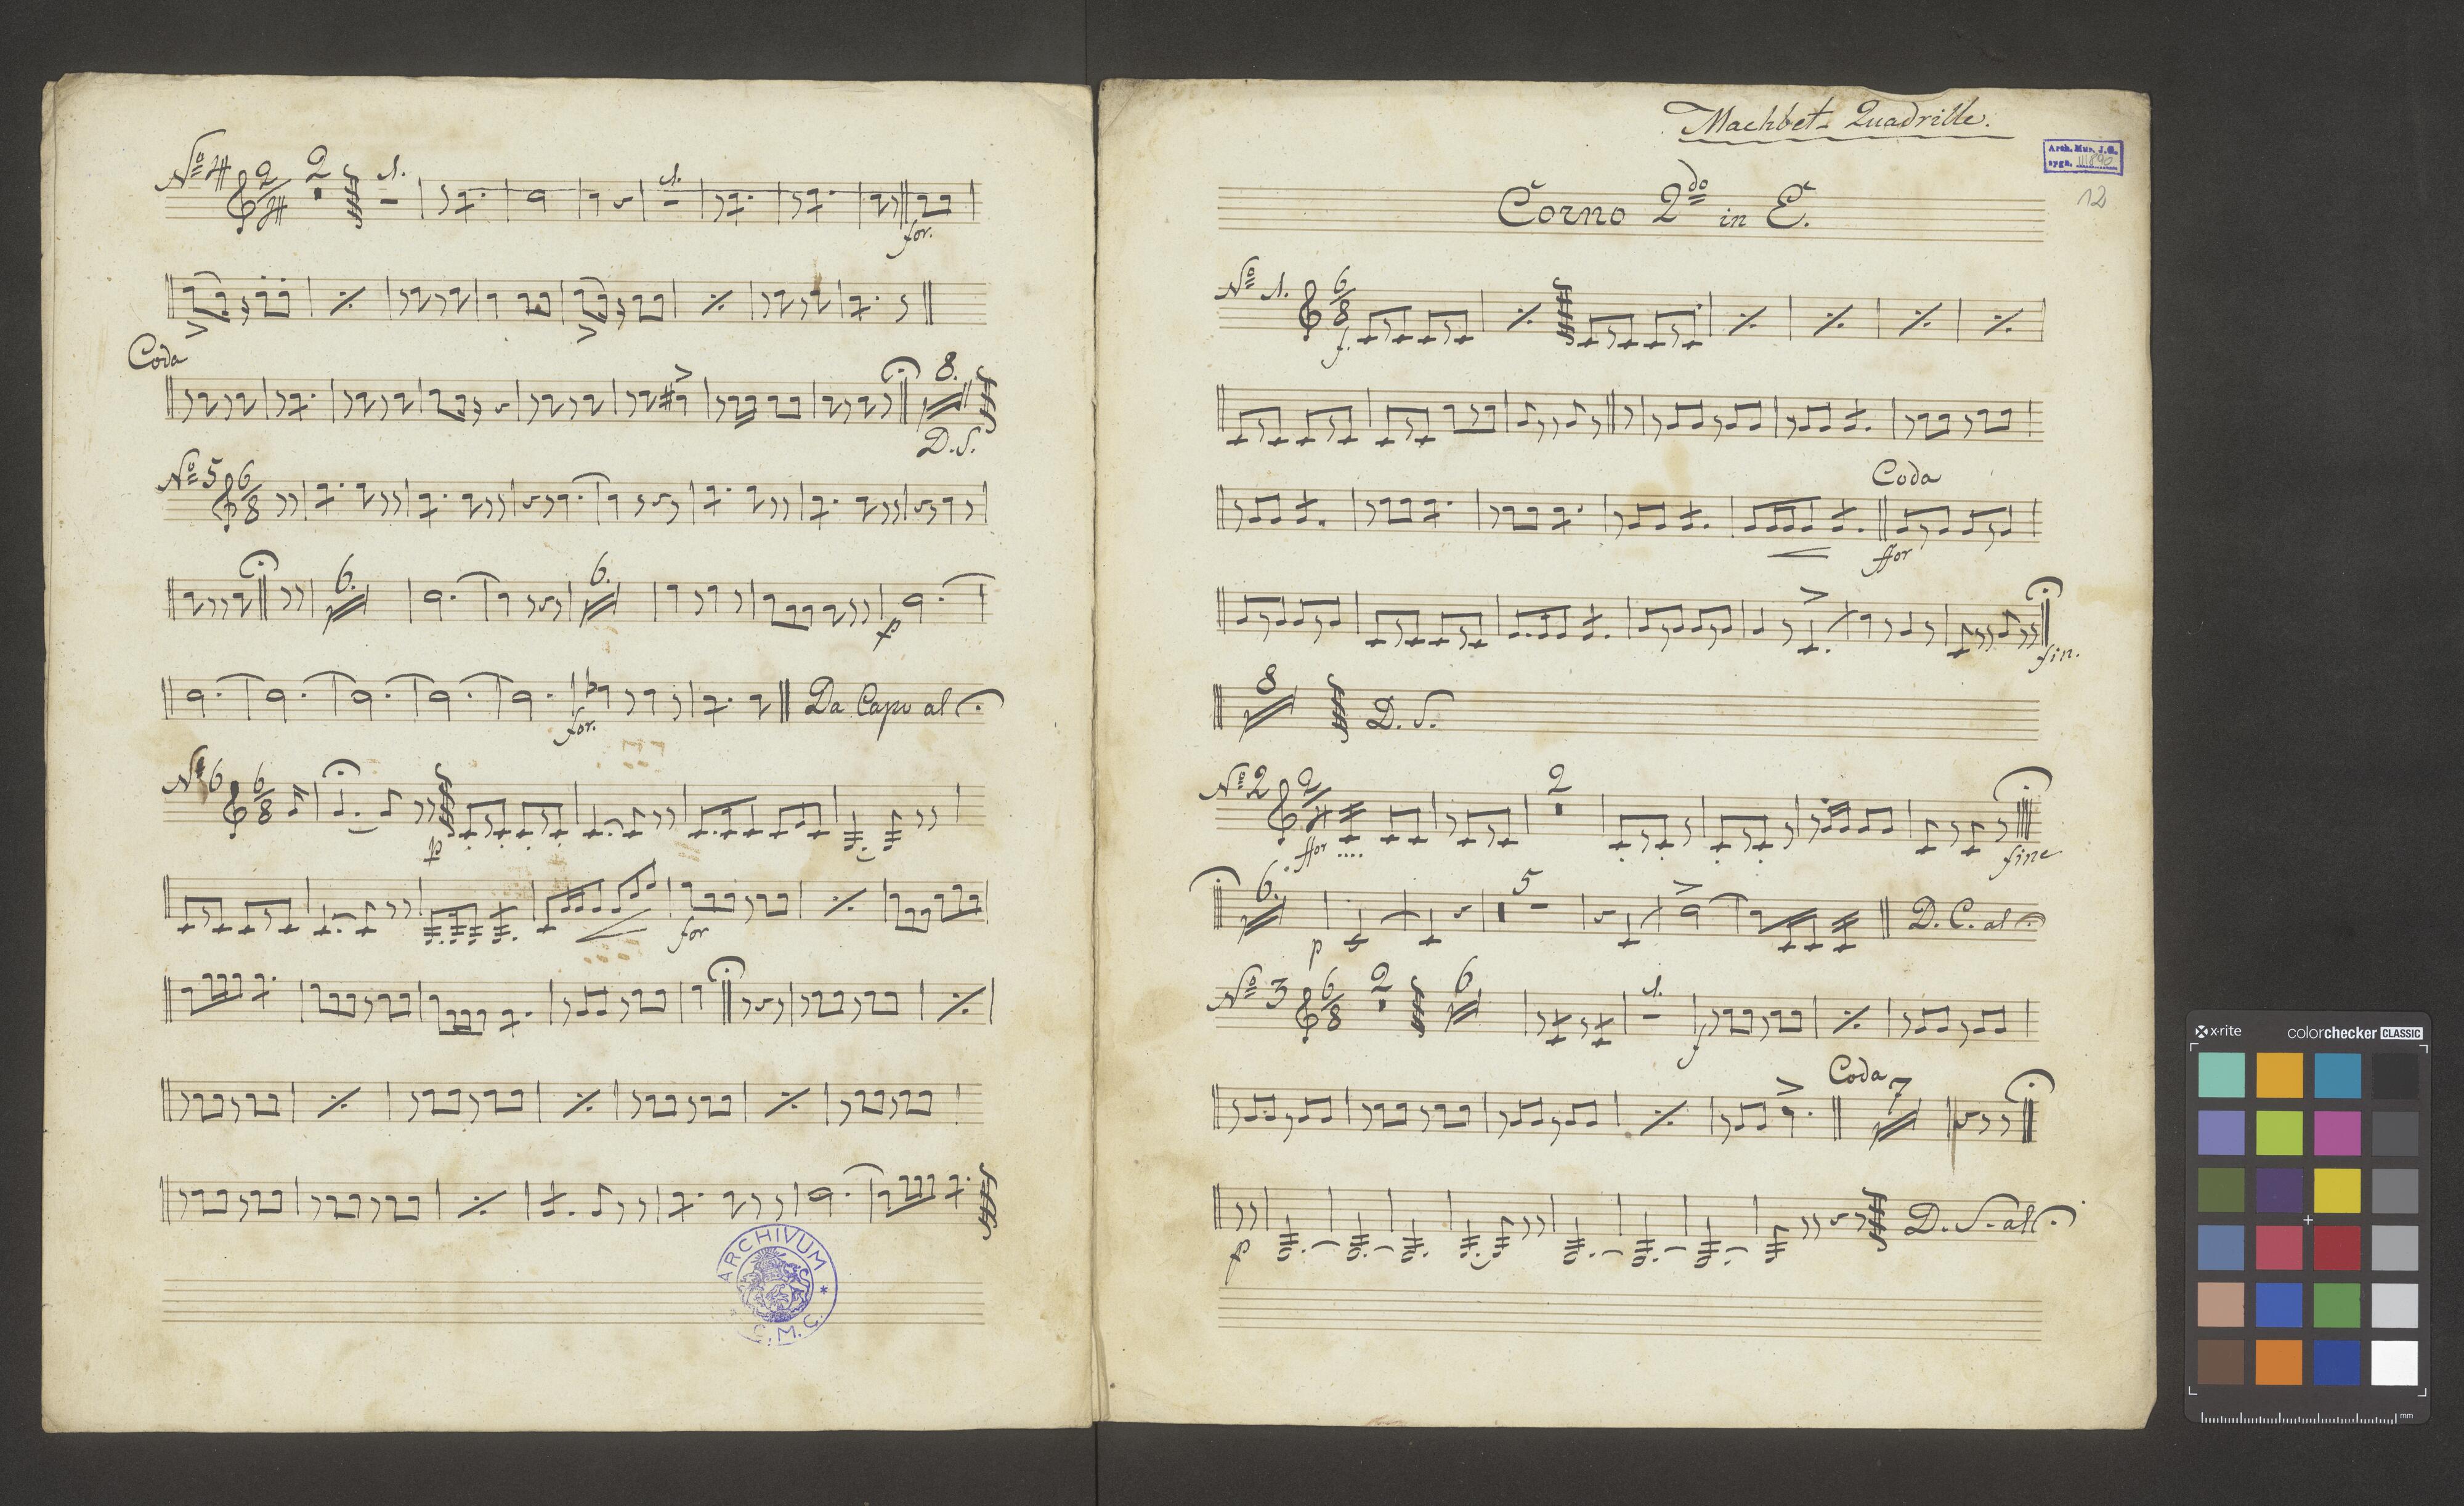 Nº 4 2/4 2 1. 1.
for.
Coda
8.
D.S.
Nº 5 6/8
6. 6.
p
for. Da Capo al
Nº 6 6/8
p
for
ARCHIVUM * C.M.C.
Machbet-Quadrille.
Arch. Mus. J.G.
sygn. III 890
12
Corno 2do in E.
Nº 1. 6/8
f.
Coda
ffor
fin.
8 D. S.
Nº 2 2/4 2
ffor fine
6. 5
p D. C. al
Nº 3 6/8 2 6 1.
f
Coda 7
p D. S. al
x-rite colorchecker CLASSIC
mm